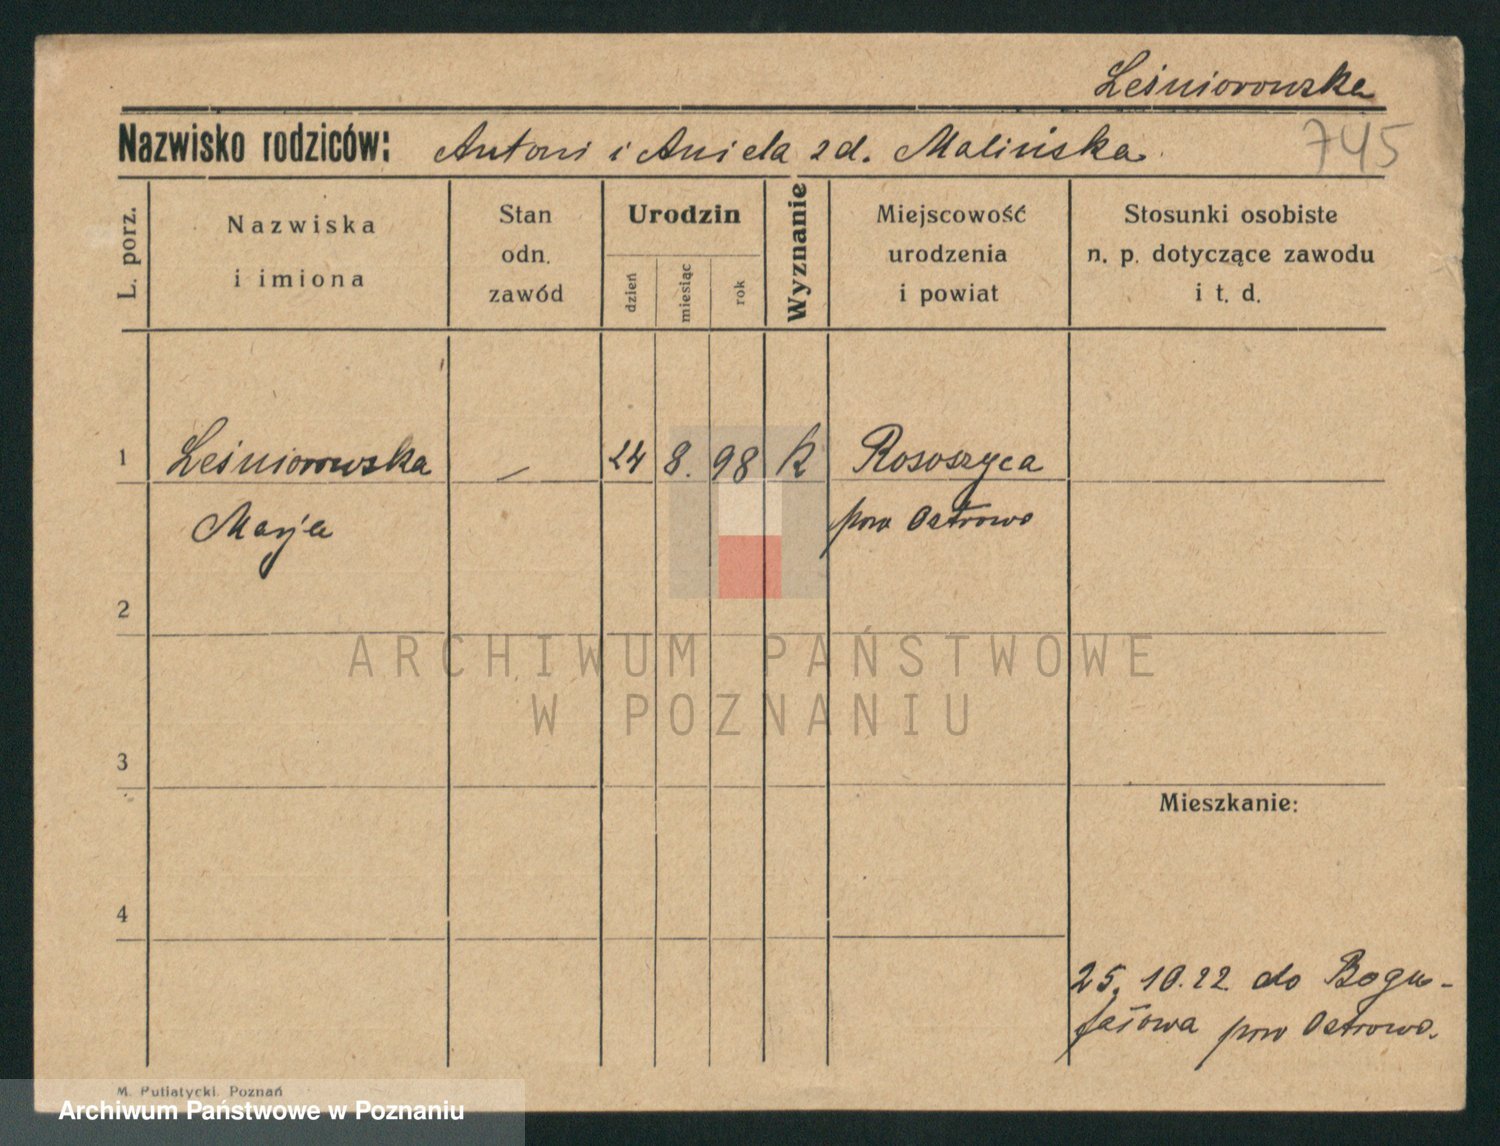 Leśniorowska
Nazwisko rodziców: Antoni i Aniela zd. Malińska.
745
L. porz.
Nazwiska
i imiona
Stan
odn.
zawód
Urodzin
dzień
miesiąc
rok
Wyznanie
Miejscowość
urodzenia
i powiat
Stosunki osobiste
n. p. dotyczące zawodu
i t. d.
1 Leśniorowska — 24 8. 98 k Rososzyca
Marja pow Ostrowo
2
3
Mieszkanie:
4
25. 10. 22 do Bogu-
fałowa pow Ostrowo.
M. Putiatycki. Poznań
ARCHIWUM PAŃSTWOWE
W POZNANIU
Archiwum Państwowe w Poznaniu